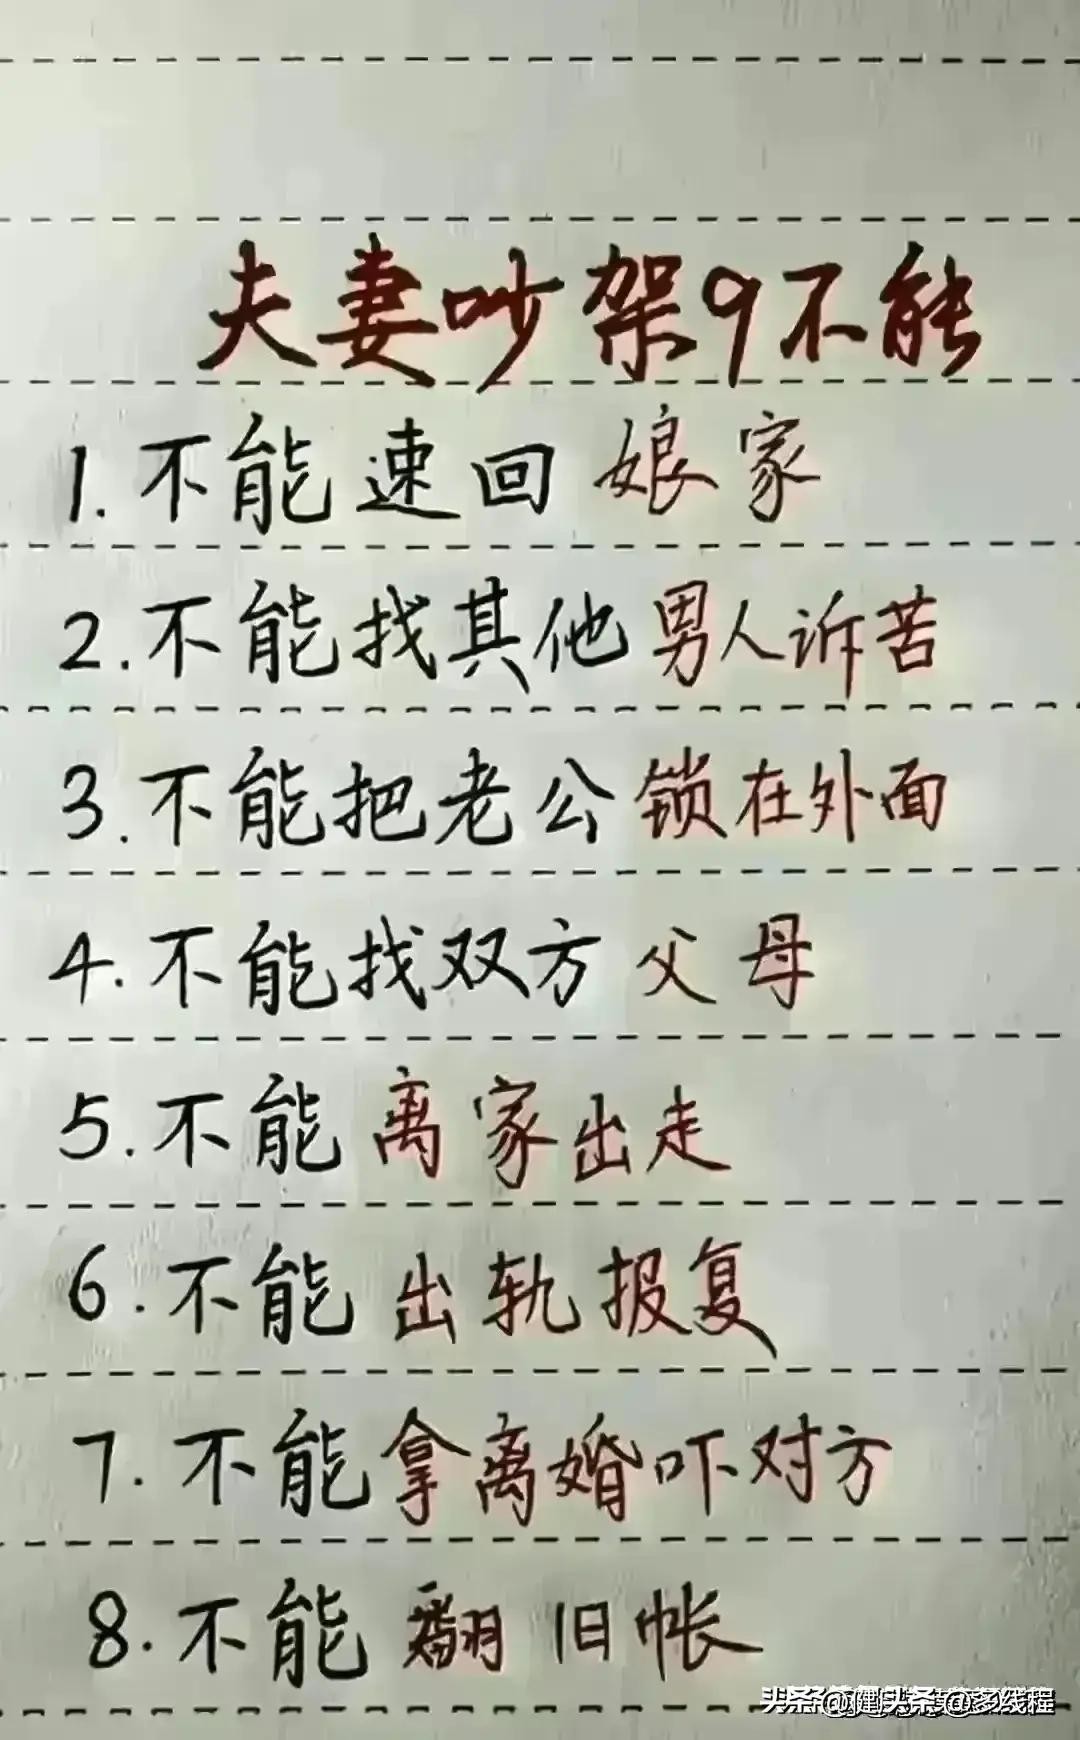 夫妻吵架9不能
1.不能速回娘家
2.不能找其他男人诉苦
3.不能把老公锁在外面
4.不能找双方父母
5.不能离家出走
6.不能出轨报复
7.不能拿离婚吓对方
8.不能翻旧帐
头条@多线程